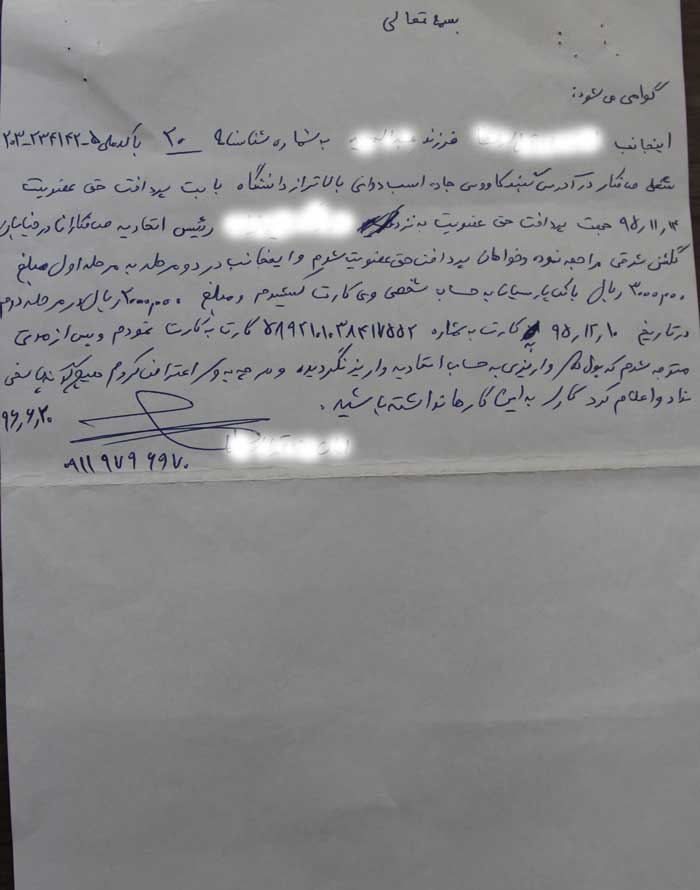 بسمه تعالی
گواهی می شود:
اینجانب فرزند به شماره شناسنامه ۲۰ با کد ملی ۵-۲۳۴۱۴۲-۲۰۳
شغل صافکار در آدرس گنبد کاووس جاده اسب دوانی بالاتر از دانشگاه بابت پرداخت حق عضویت
۹۵,۱۱,۱۳ جهت پرداخت حق عضویت به نزد رئیس اتحادیه صافکاران در خیابان
گلشن شرقی مراجعه نموده و خواهان پرداخت حق عضویت شدم و اینجانب در دو مرحله به مرحله اول مبلغ
۳۰۰۰,۰۰۰ ریال بانک پارسیان به حساب شخصی وی کارت کشیدم و مبلغ ۲۰۰۰,۰۰۰ ریال در مرحله دوم
در تاریخ ۹۵,۱۲,۱۰ به کارت به شماره ۵۸۹۲۱۰۱۰۳۸۴۱۷۵۵۲ کارت به کارت نمودم و پس از مدتی
متوجه شدم که پول واریزی به حساب اتحادیه واریز نگردیده و هرچه به وی اعتراض کردم هیچ گونه پاسخی
نداد و اعلام کرد کاری به این کارها نداشته باشید.
۹۶,۶,۲۰
۰۹۱۱۹۷۹۶۹۷۰